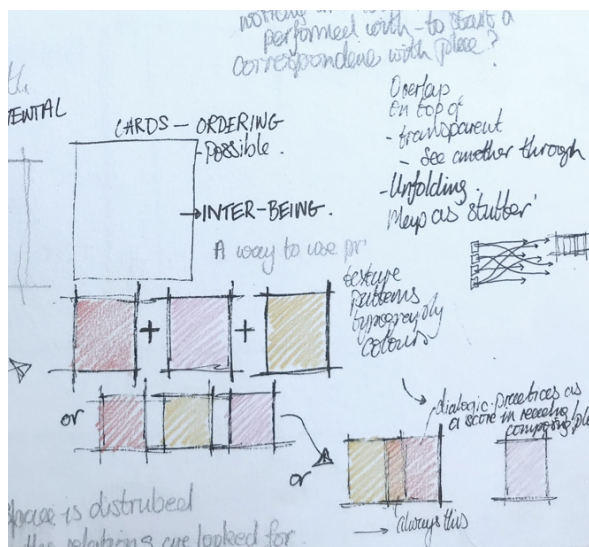 performed with - to start a
correspondence with place?
CARDS – ORDERING
- Possible.
→ INTER-BEING.
A way to use
Overlaps
On top of
- transparent
- See another through
- Unfolding.
Map as stutter'
texture
patterns
typography
colours
+ +
or
or
dialogic practices as
a score in
composing
→ always this
is distrubed
the relations are looked for